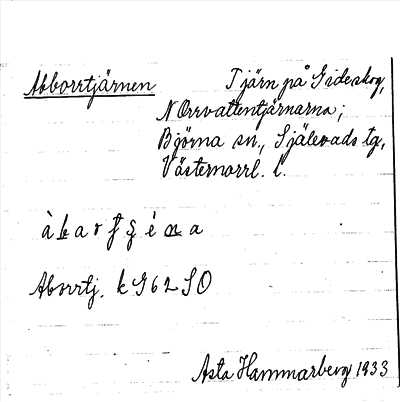 Abborrtjärnen Tjärn på Gideskog,
N Orrvattentjärnarna;
Björna sn., Själevads tg,
Västernorrl. l.
Aborrtj. k G 62 SO
Asta Hammarberg 1933